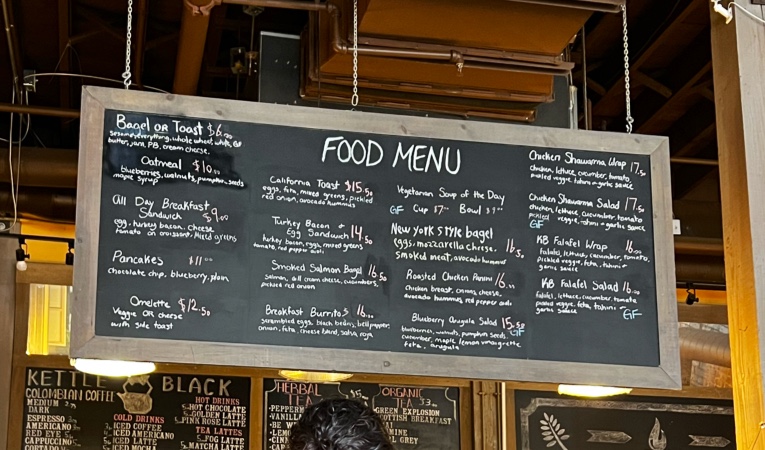 Bagel OR Toast $6.00
sesame, everything, whole wheat, white, GF
butter, jam, P.B, cream cheese.
Oatmeal $10.00
blueberries, walnuts, pumpkin seeds
maple syrup
All Day Breakfast
Sandwich $9.00
egg, turkey bacon, cheese
tomato on croissant, mixed greens
Pancakes $11.00
chocolate chip, blueberry, plain
Omelette $12.50
Veggie OR cheese
with side toast
FOOD MENU
California Toast $15.50
eggs, feta, mixed greens, pickled
red onion, avocado hummus
Turkey Bacon &
Egg Sandwich 14.50
turkey bacon, eggs, mixed greens
tomato, red pepper aioli
Smoked Salmon Bagel 16.50
salmon, dill cream cheese, cucumbers,
pickled red onion
Breakfast Burritos 16.00
scrambled eggs, black beans, bell pepper,
onion, feta, cheese blend, salsa,
Vegetarian Soup of the Day
GF Cup $7.00 Bowl $9.00
New york style bagel
eggs, mozzarella cheese, 16.50
smoked meat, avocado hummus
Roasted Chicken Panini 16.00
chicken breast, onions, cheese,
avocado hummus, red pepper aioli
Blueberry Arugula Salad 15.50
blueberries, walnuts, pumpkin seeds, GF
cucumber, maple lemon vinaigrette
feta, arugula
Chicken Shawarma Wrap 17.50
chicken, lettuce, cucumber, tomato,
pickled veggie, tahini + garlic sauce
Chicken Shawarma Salad 17.50
chicken, lettuce, cucumber, tomato
pickled veggie, tahini + garlic sauce
GF
KB Falafel Wrap 16.00
falafel, lettuce, cucumber, tomato,
pickled veggie, feta, tahini +
garlic sauce
KB Falafel Salad 16.00
falafel, lettuce, cucumber, tomato
pickled veggie, feta, tahini +
garlic sauce GF
KETTLE BLACK
COLOMBIAN COFFEE
MEDIUM
DARK
ESPRESSO
AMERICANO
RED EYE
CAPPUCCINO
CORTADO
COLD DRINKS
ICED COFFEE
ICED AMERICANO
ICED LATTE
ICED MOCHA
HOT DRINKS
HOT CHOCOLATE
GOLDEN LATTE
PINK ROSE LATTE
TEA LATTES
FOG LATTE
MATCHA LATTE
HERBAL
TEA
PEPPERM
VANILL
BE W
LEMO
CINN
ORGANIC
TEA
GREEN EXPLOSION
BREAKFAST
MINE
L GREY